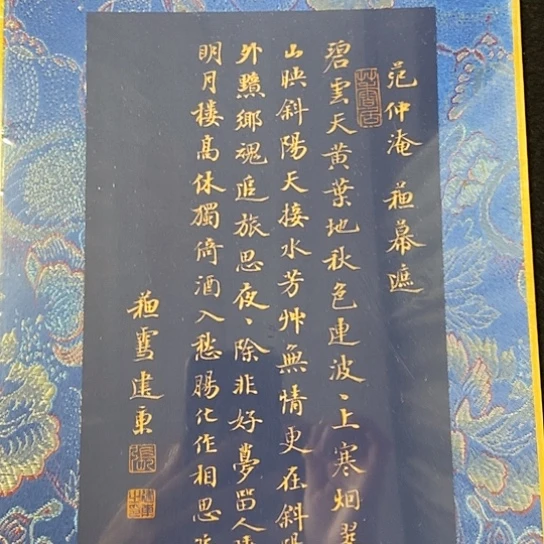 范仲淹 蘓幕遮
碧雲天黄葉地秋色連波、上寒烟翠
山映斜陽天接水芳艸無情更在斜陽
外黯鄉魂追旅思夜、除非好夢留人
明月樓高休獨倚酒入愁腸化作相思
蘓雪建東
張